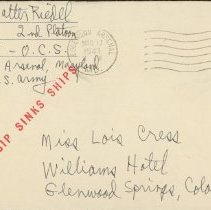 Walter Riedel
2nd Platoon
- O.C.S. -
Arsenal, Maryland
S. Army
ARSENAL
SIP SINKS SHIPS
Miss Lois Cress
Williams Hotel
Glenwood Springs, Colo